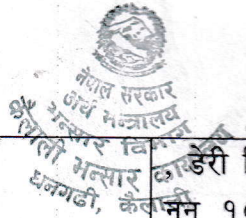 नेपाल सरकार
अर्थ मन्त्रालय
भन्सार विभाग
कैलाली भन्सार कार्यालय
धनगढी, कैलाली
, डेरी